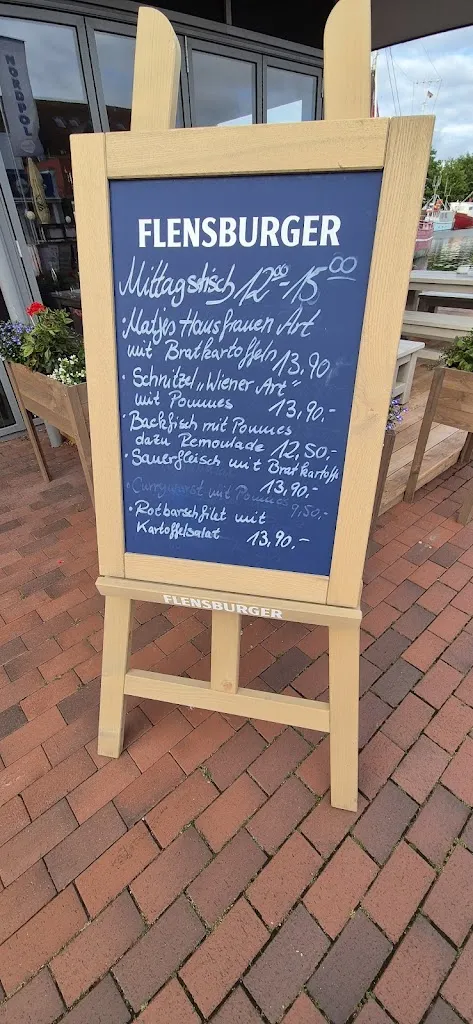 NORDPOL
FLENSBURGER
Mittagstisch 12⁰⁰-15⁰⁰
• Matjes Hausfrauen Art
mit Bratkartoffeln 13,90
• Schnitzel „Wiener Art"
mit Pommes 13,90.-
• Backfisch mit Pommes
dazu Remoulade 12,50,-
• Sauerfleisch mit Bratkartoffe
13,90.-
• Currywurst mit Pommes 9,50,-
• Rotbarschfilet mit
Kartoffelsalat 13,90,-
FLENSBURGER